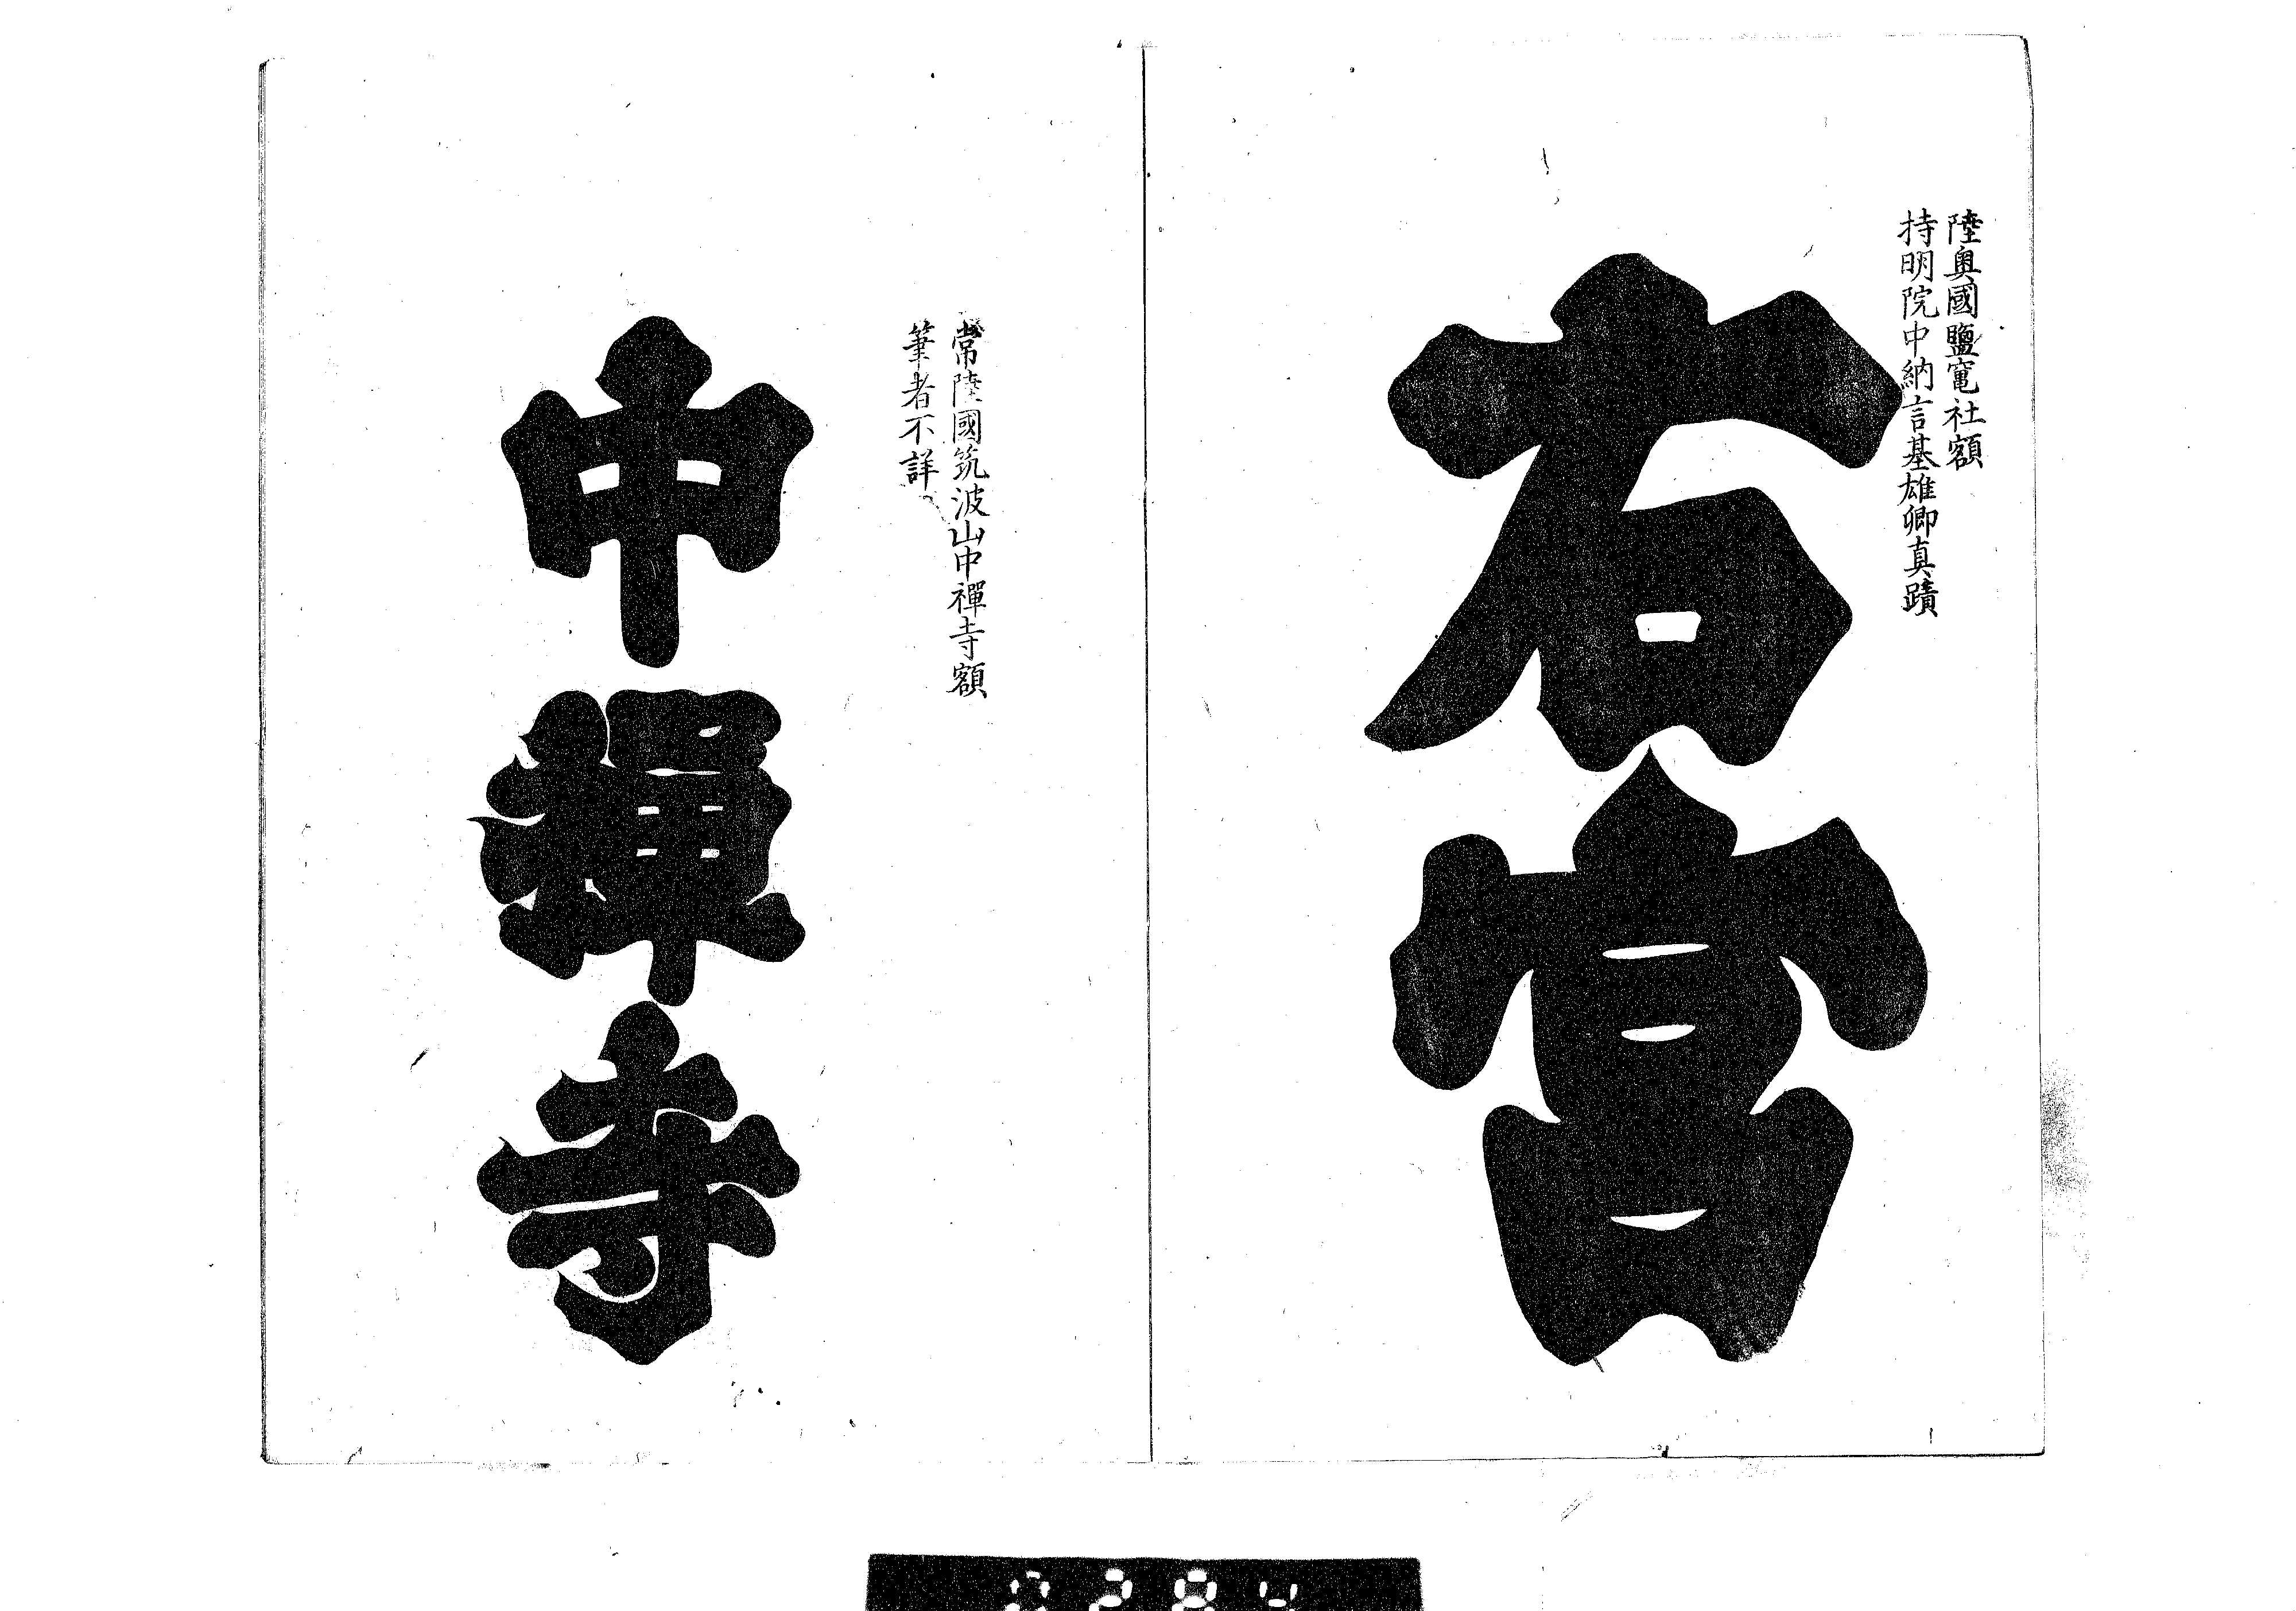 陸奥國鹽竃社額
持明院中納言基雄卿真蹟
右宮
常陸國筑波山中禪寺額
筆者不詳
中禪寺